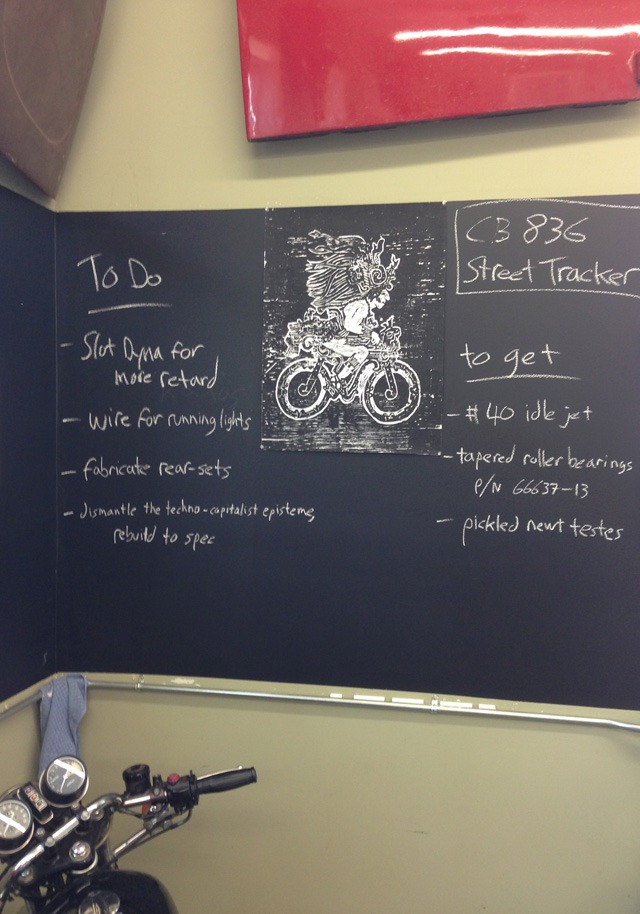 To Do
- Slot Dyna for
more retard
- wire for running lights
- fabricate rear-sets
- dismantle the techno-capitalist episteme,
rebuild to spec
CB 836
Street Tracker
to get
- # 40 idle jet
- tapered roller bearings
P/N 66637-13
- pickled newt testes